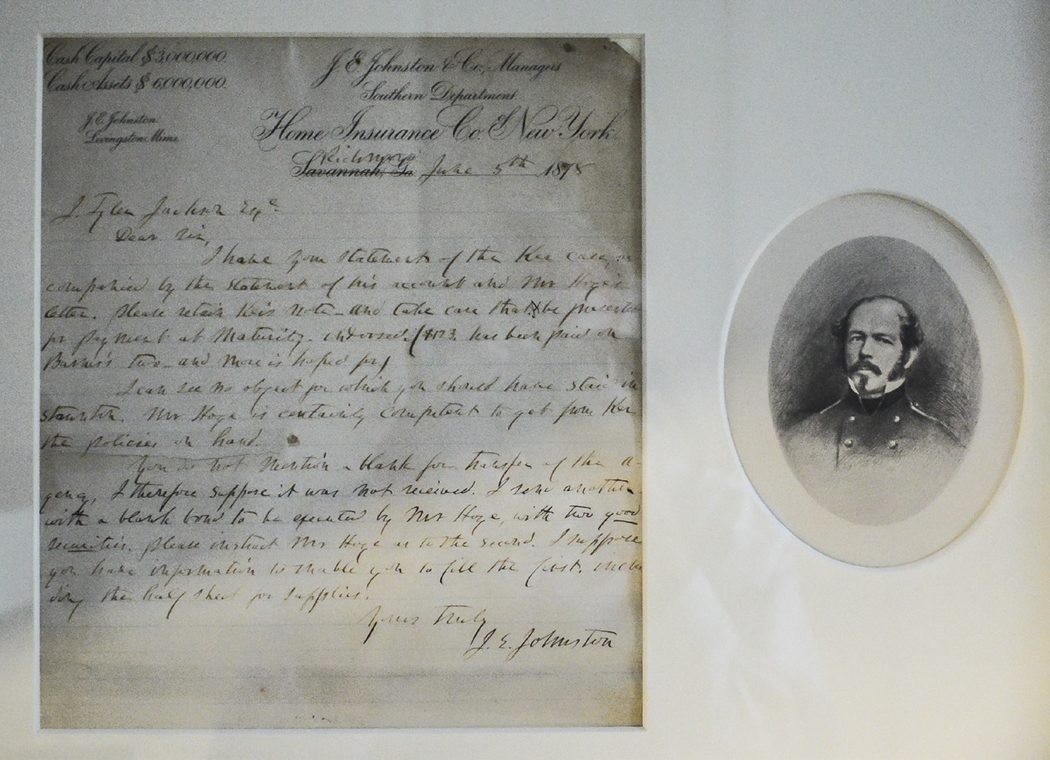 Cash Capital $3,000,000.
Cash Assets $6,000,000.
J. E. Johnston & Co., Managers
Southern Department.
J. E. Johnston.
Livingston Mims.
Home Insurance Co. of New York.
Richmond
Savannah, Ga. June 5th 1878
J. Tyler Jackson Esqr.
Dear Sir,
I have your statement of the Ker case, ac
companied by the statement of his account and Mr Hoge's
letter. Please retain his note and take care that be presented
for payment at maturity has been paid on
two and more is hoped for
I can see no object for which you should have staid in
Staunton. Mr Hoge is certainly competent to get from Ker
the policies on hand.
You do not mention a blank for transfer of the a-
gency, I therefore suppose it was not received. I send another
with a blank bond to be executed by Mr Hoge, with two good
securities. Please instruct Mr Hoge as to the second. I suppose
you have information to enable you to fill the first, inclu
ding the half sheet for supplies.
Yours truly
J. E. Johnston